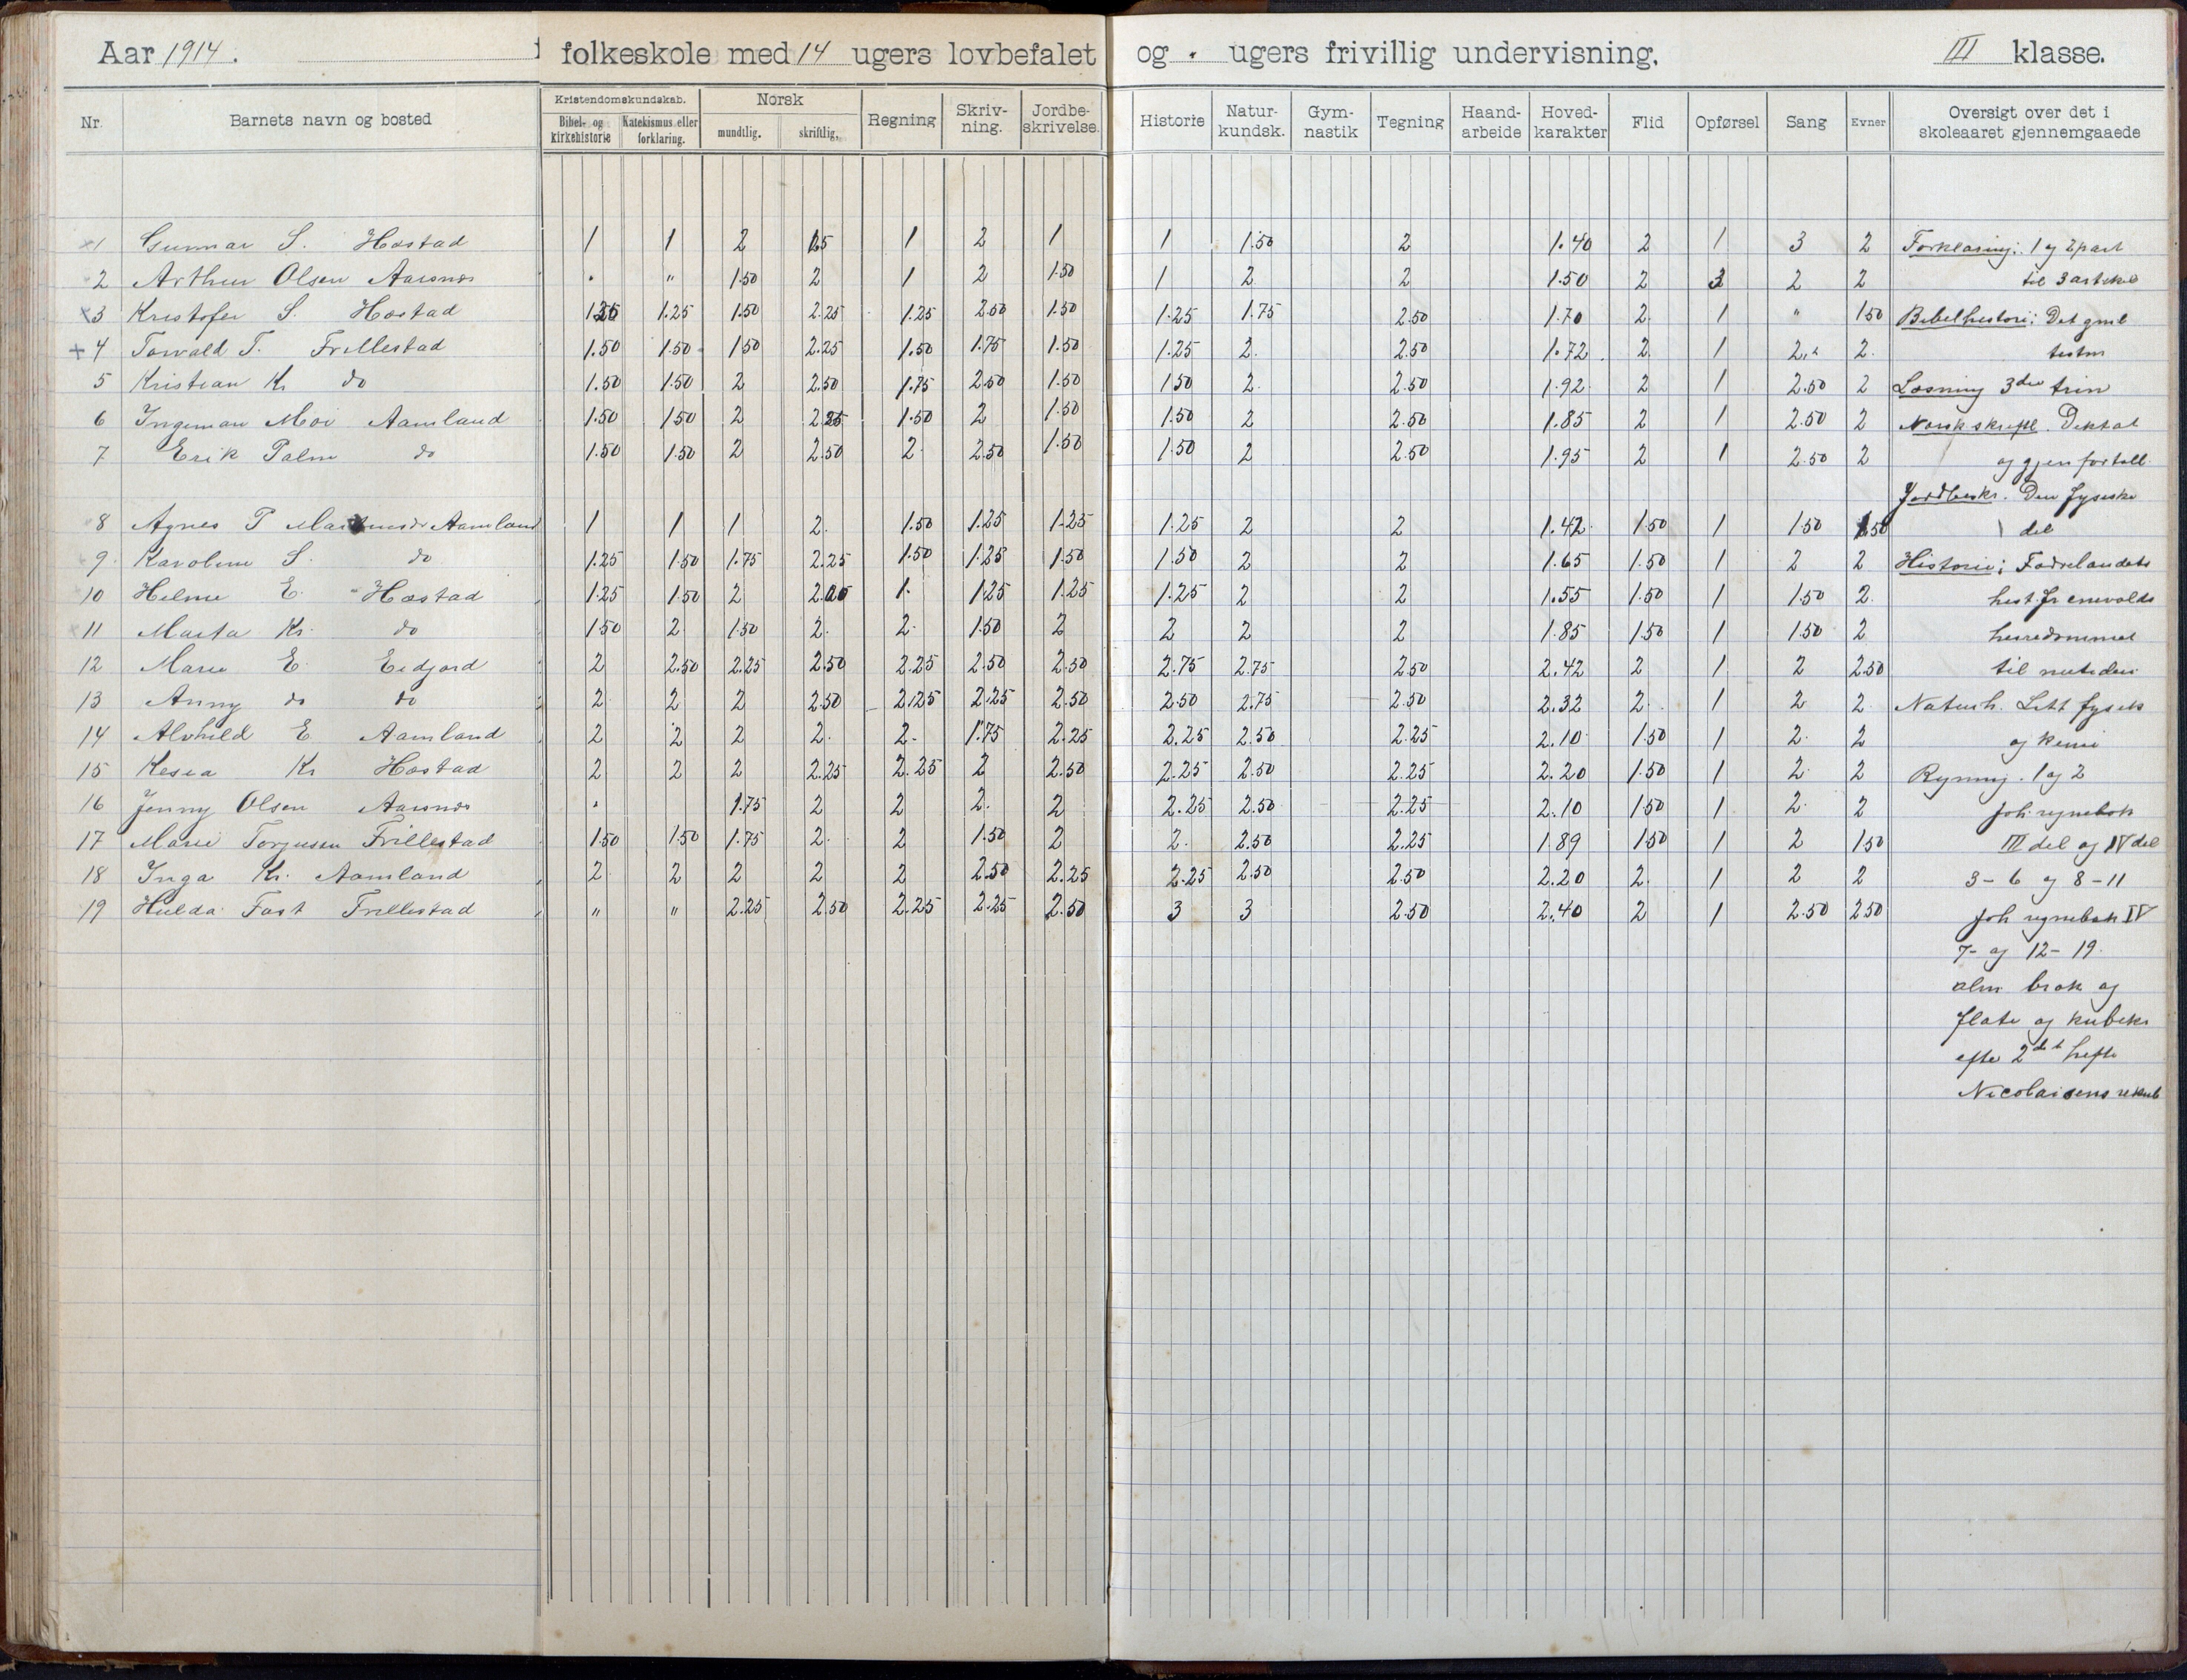 Aar 1914. i folkeskole med 14 ugers lovbefalet og - ugers frivillig undervisning. III klasse.
Nr. Barnets navn og bosted Kristendomskundskab. Bibel- og kirkehistorie Katekismus eller forklaring. Norsk mundtlig. skriftlig. Regning Skriv-ning. Jordbe-skrivelse. Historie Natur-kundsk. Gym-nastik Tegning Haand-arbeide Hoved-karakter Flid Opførsel Sang Evner Oversigt over det i skoleaaret gjennemgaaede
1 Gunnar S. Hæstad 1 1 2 1 2 1 1 1.50 2 1.40 2 1 3 2 Forklaring: 1 og 2 part
2 Arthur Olsen Aarsnes " " 1.50 2 1 2 1.50 1 2 2 1.50 2 3 2 2 til 3 artikel
3 Kristofer S. Hæstad 1.25 1.25 1.50 2.25 1.25 2.50 1.50 1.25 1.75 2.50 1.70 2 1 " 1.50 Bibelhistorie: Det gml
+ 4 Torvald T. Frillestad 1.50 1.50 1.50 2.25 1.50 1.75 1.50 1.25 2 2.50 1.72 2 1 2 2 testm
5 Kristian Kr do 1.50 1.50 2 2.50 1.75 2.50 1.50 1.50 2 2.50 1.92 2 1 2.50 2 Læsning 3die trin
6 Ingeman Moi Aamland 1.50 1.50 2 2.25 1.50 2 1.50 1.50 2 2.50 1.85 2 1 2.50 2 Norsk skriftl. Diktat
7 Erik Palm do 1.50 1.50 2 2.50 2 2.50 1.50 1.50 2 2.50 1.95 2 1 2.50 2 og gjenfortell.
Jordbeskr. Den fysiske
8 Agnes T Aamland 1 1 1 2 1.50 1.25 1.25 1.25 2 2 1.42 1.50 1 1.50 1.50 del
9 Karoline S. do 1.25 1.50 1.75 2.25 1.50 1.25 1.50 1.50 2 2 1.65 1.50 1 2 2 Historie: Fædrelandets
10 Helene E. Hæstad 1.25 1.50 2 1 1.25 1.25 1.25 2 2 1.55 1.50 1 1.50 2 hist. fr enevolds
11 Marta Kr. do 1.50 2 1.50 2 2 1.50 2 2 2 2 1.85 1.50 1 1.50 2 herredømmet
12 Marie E. Eidjord 2 2.50 2.25 2.50 2.25 2.50 2.50 2.75 2.75 2.50 2.42 2 1 2 2.50 til nutiden
13 Anny do do 2 2 2 2.50 2.25 2.25 2.50 2.50 2.75 2.50 2.32 2 1 2 2 Naturh. Litt fysik
14 Alvhild E. Aamland 2 2 2 2 2 1.75 2.25 2.25 2.50 2.25 2.10 1.50 1 2 2 og kemi
15 Kesia Kr Hæstad 2 2 2 2.25 2.25 2 2.50 2.25 2.50 2.25 2.20 1.50 1 2 2 Regning. 1 og 2
16 Jenny Olsen Aarsnes " 1.75 2 2 2 2 2.25 2.50 2.25 2.10 1.50 1 2 2 Joh. regnebok
17 Marie Torjusen Frillestad 1.50 1.50 1.75 2 2 1.50 2 2 2.50 2.25 1.89 1.50 1 2 1.50 III del og IV del
18 Inga Kr. Aamland 2 2 2 2 2 2.50 2.25 2.25 2.50 2.50 2.20 2 1 2 2 3-6 og 8-11
19 Hulda Fast Frillestad " " 2.25 2.50 2.25 2.25 2.50 3 3 2.50 2.40 2 1 2.50 2.50 Joh regnebok IV
7- og 12-19.
alm brøk og
flate og kubikr
efter 2det hefte
Nicolaisens